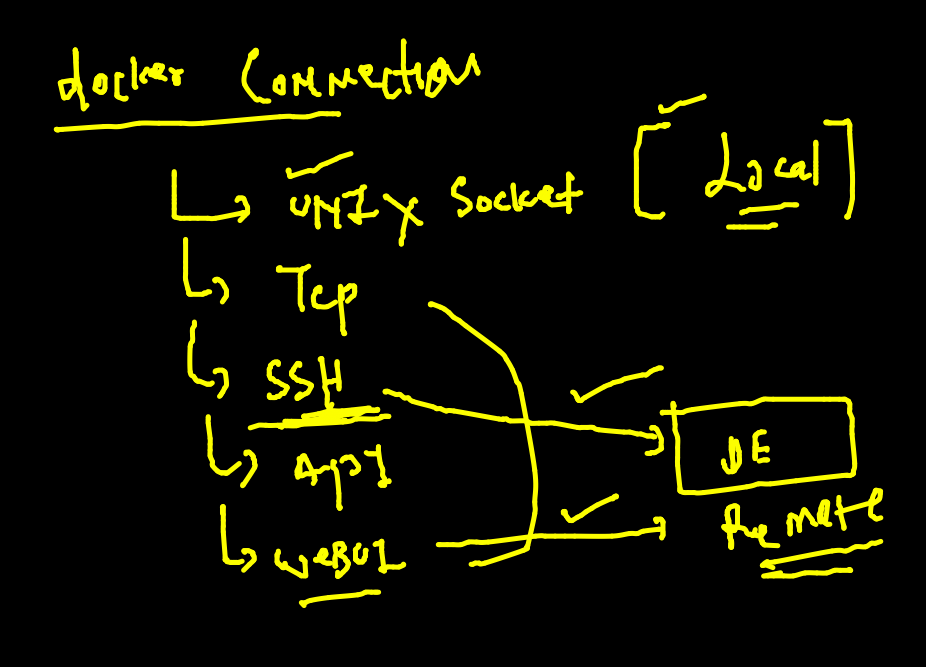 docker Connection
UNIX Socket [Local]
Tcp
SSH
ApI
DE
Remote
weBUI